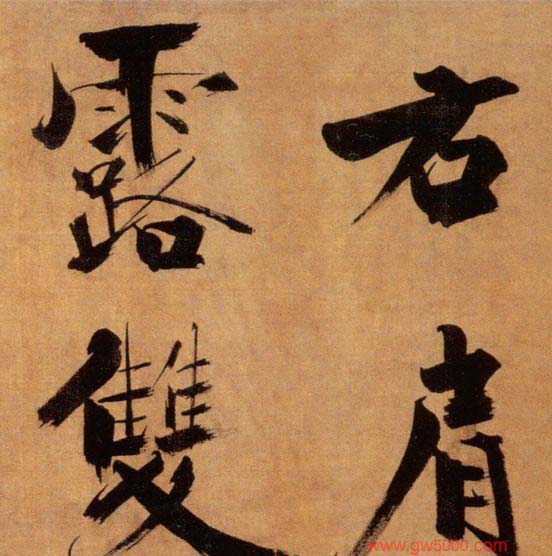 右肩
露雙
www.gw5000.com